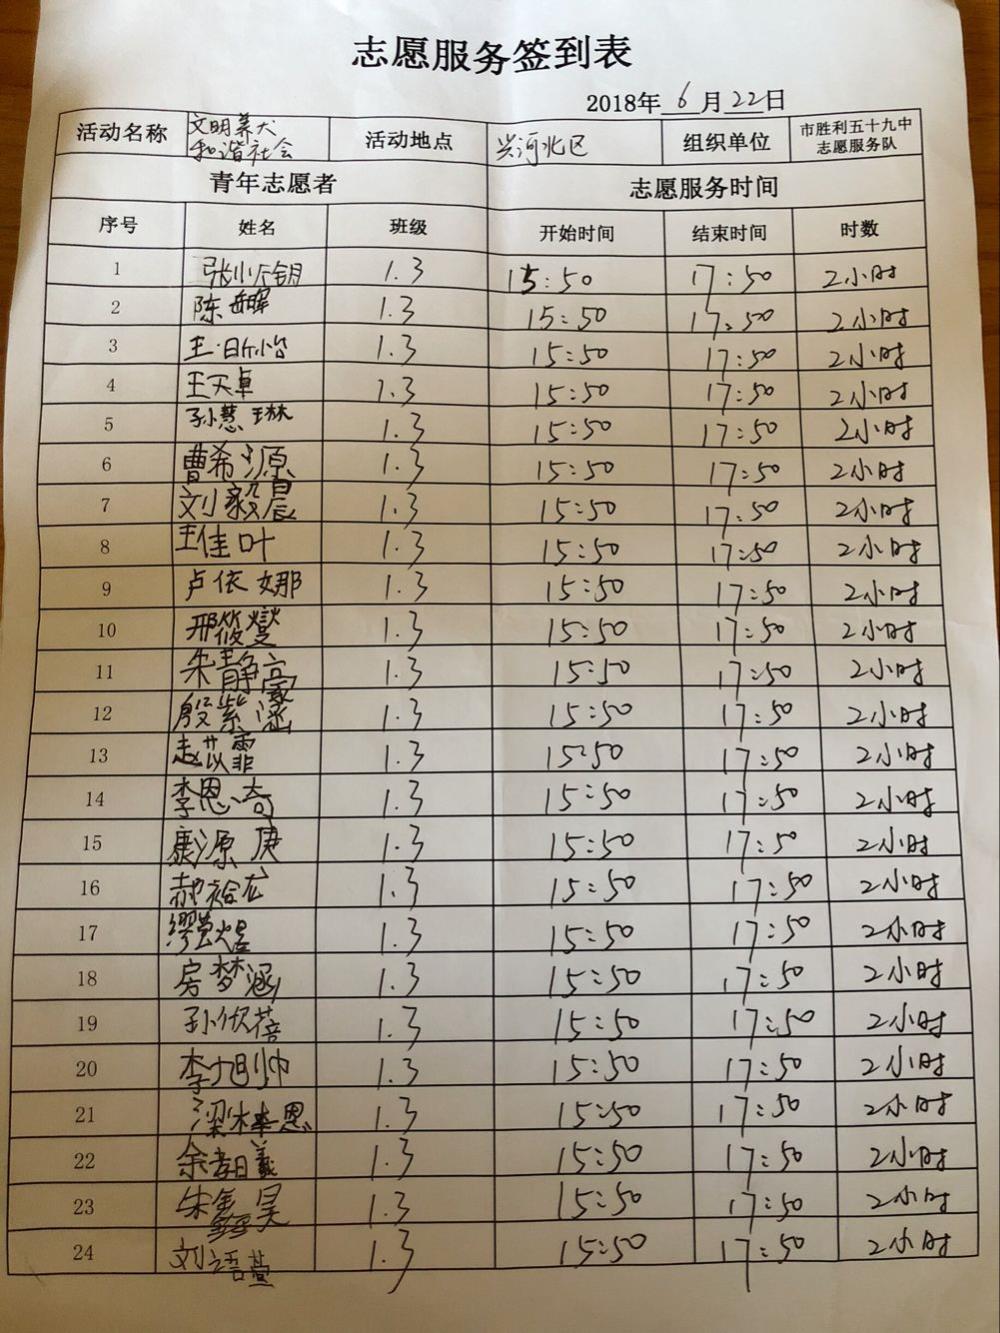 志愿服务签到表
2018年 6 月 22 日
活动名称 文明养犬 和谐社会 活动地点 兴河北区 组织单位 市胜利五十九中志愿服务队
青年志愿者 志愿服务时间
序号 姓名 班级 开始时间 结束时间 时数
1 1.3 15:50 17:50 2小时
2 陈 1.3 15:50 17:50 2小时
3 王昕怡 1.3 15:50 17:50 2小时
4 王天卓 1.3 15:50 17:50 2小时
5 孙慧琳 1.3 15:50 17:50 2小时
6 曹希源 1.3 15:50 17:50 2小时
7 刘毅晨 1.3 15:50 17:50 2小时
8 王佳叶 1.3 15:50 17:50 2小时
9 卢依娜 1.3 15:50 17:50 2小时
10 邢筱燮 1.3 15:50 17:50 2小时
11 朱静 1.3 15:50 17:50 2小时
12 殷紫涵 1.3 15:50 17:50 2小时
13 赵苡霏 1.3 15:50 17:50 2小时
14 李恩奇 1.3 15:50 17:50 2小时
15 康源庚 1.3 15:50 17:50 2小时
16 郝裕龙 1.3 15:50 17:50 2小时
17 缪煜 1.3 15:50 17:50 2小时
18 房梦涵 1.3 15:50 17:50 2小时
19 孙欣蓓 1.3 15:50 17:50 2小时
20 李旭帅 1.3 15:50 17:50 2小时
21 梁恩 1.3 15:50 17:50 2小时
22 余 1.3 15:50 17:50 2小时
23 朱昊 1.3 15:50 17:50 2小时
24 刘语萱 1.3 15:50 17:50 2小时